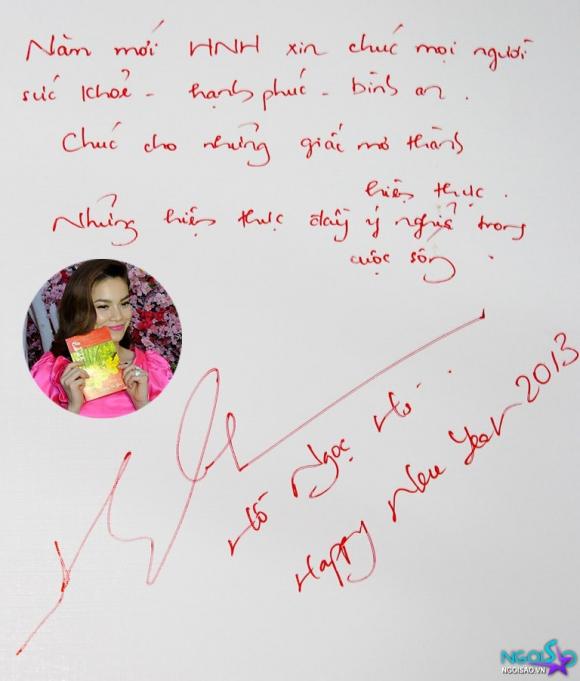 Năm mới HNH xin chúc mọi người
sức khoẻ - hạnh phúc - bình an.
Chúc cho những giấc mơ thành
hiện thực.
Những hiện thực đầy ý nghĩa trong
cuộc sống.
Hồ Ngọc Hà.
Happy New Year 2013
NGOISAO
NGOISAO.VN